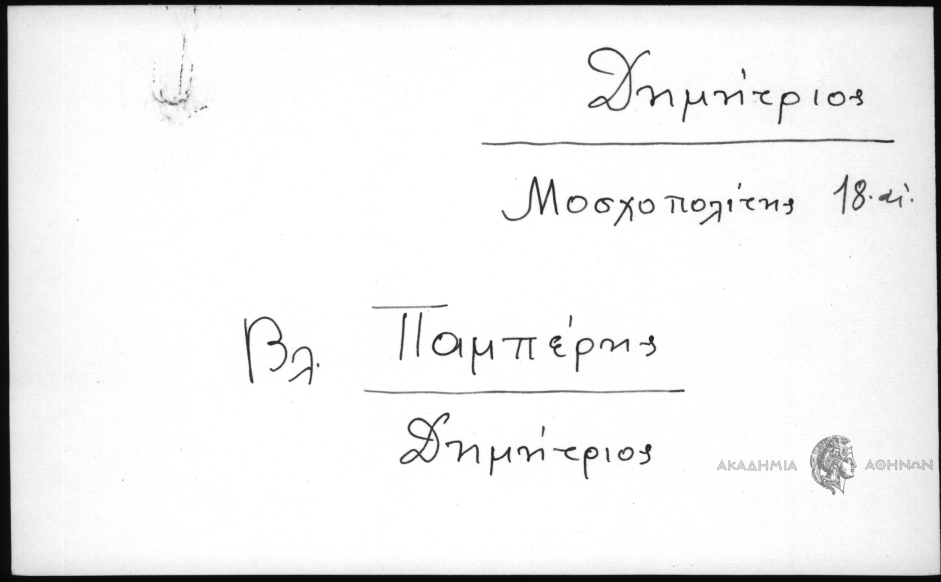 Δημήτριος
Μοσχοπολίτης 18. αἰ.
Βλ. Παμπέρης
Δημήτριος
ΑΚΑΔΗΜΙΑ ΑΘΗΝΩΝ